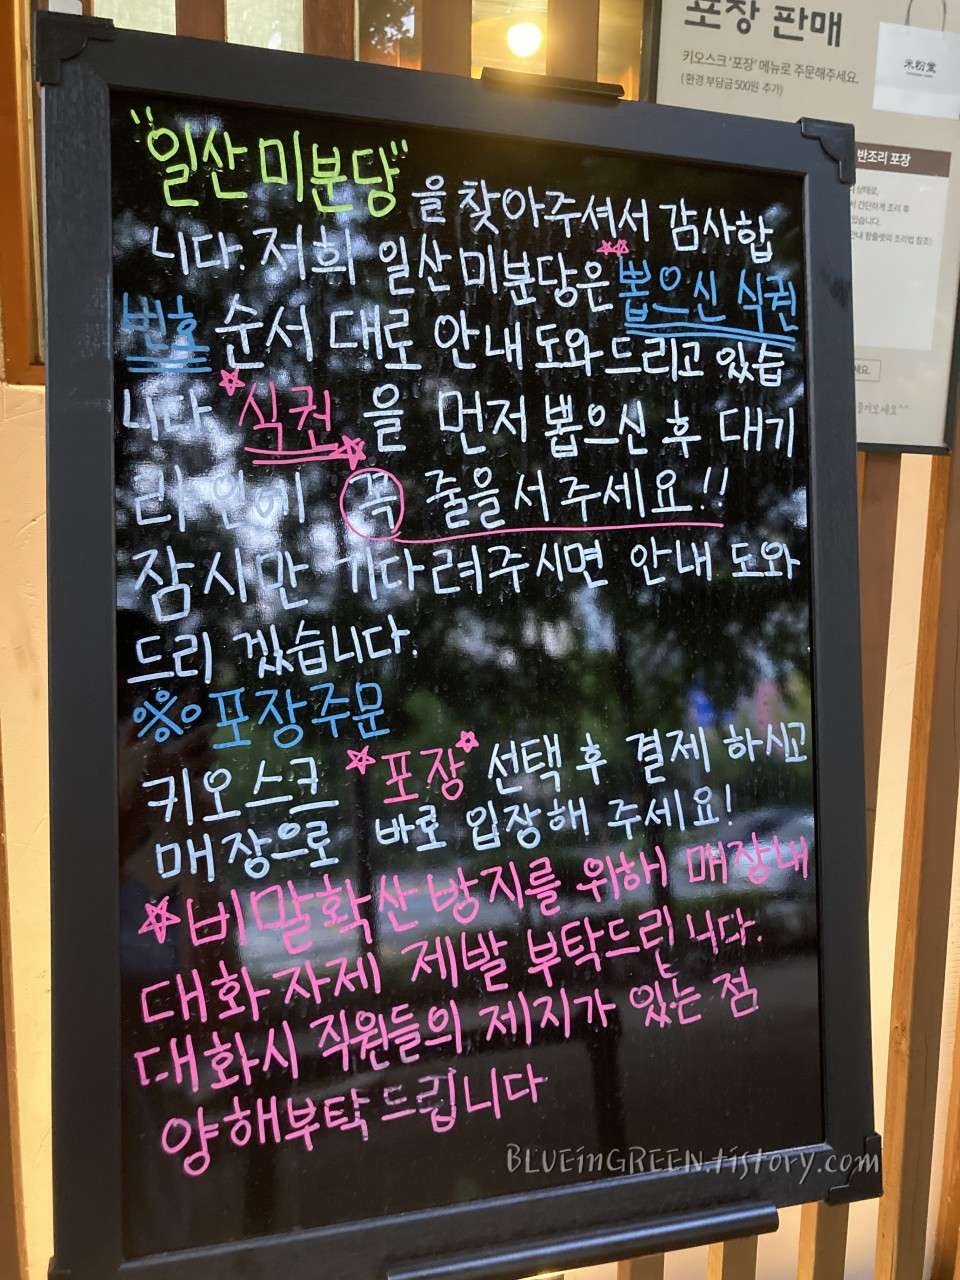 포장 판매
키오스크 '포장' 메뉴로 주문해주세요.
(환경 부담금 500원 추가)
米粉堂
반조리 포장
간단하게 조리 후
있습니다.
"일산미분당"을 찾아주셔서 감사합
니다. 저희 일산미분당은 뽑으신 식권
번호 순서 대로 안내 도와드리고 있습
니다 식권을 먼저 뽑으신 후 대기
라인에 꼭 줄을서주세요!!
잠시만 기다려주시면 안내 도와
드리 겠습니다.
※ 포장주문
키오스크 *포장* 선택 후 결제 하시고
매장으로 바로 입장해 주세요!
*비말확산방지를 위해 매장내
대화 자제 제발 부탁드린니다.
대화시 직원들의 제지가 있는 점
양해부탁드립니다
BLUEinGREEN.tistory.com